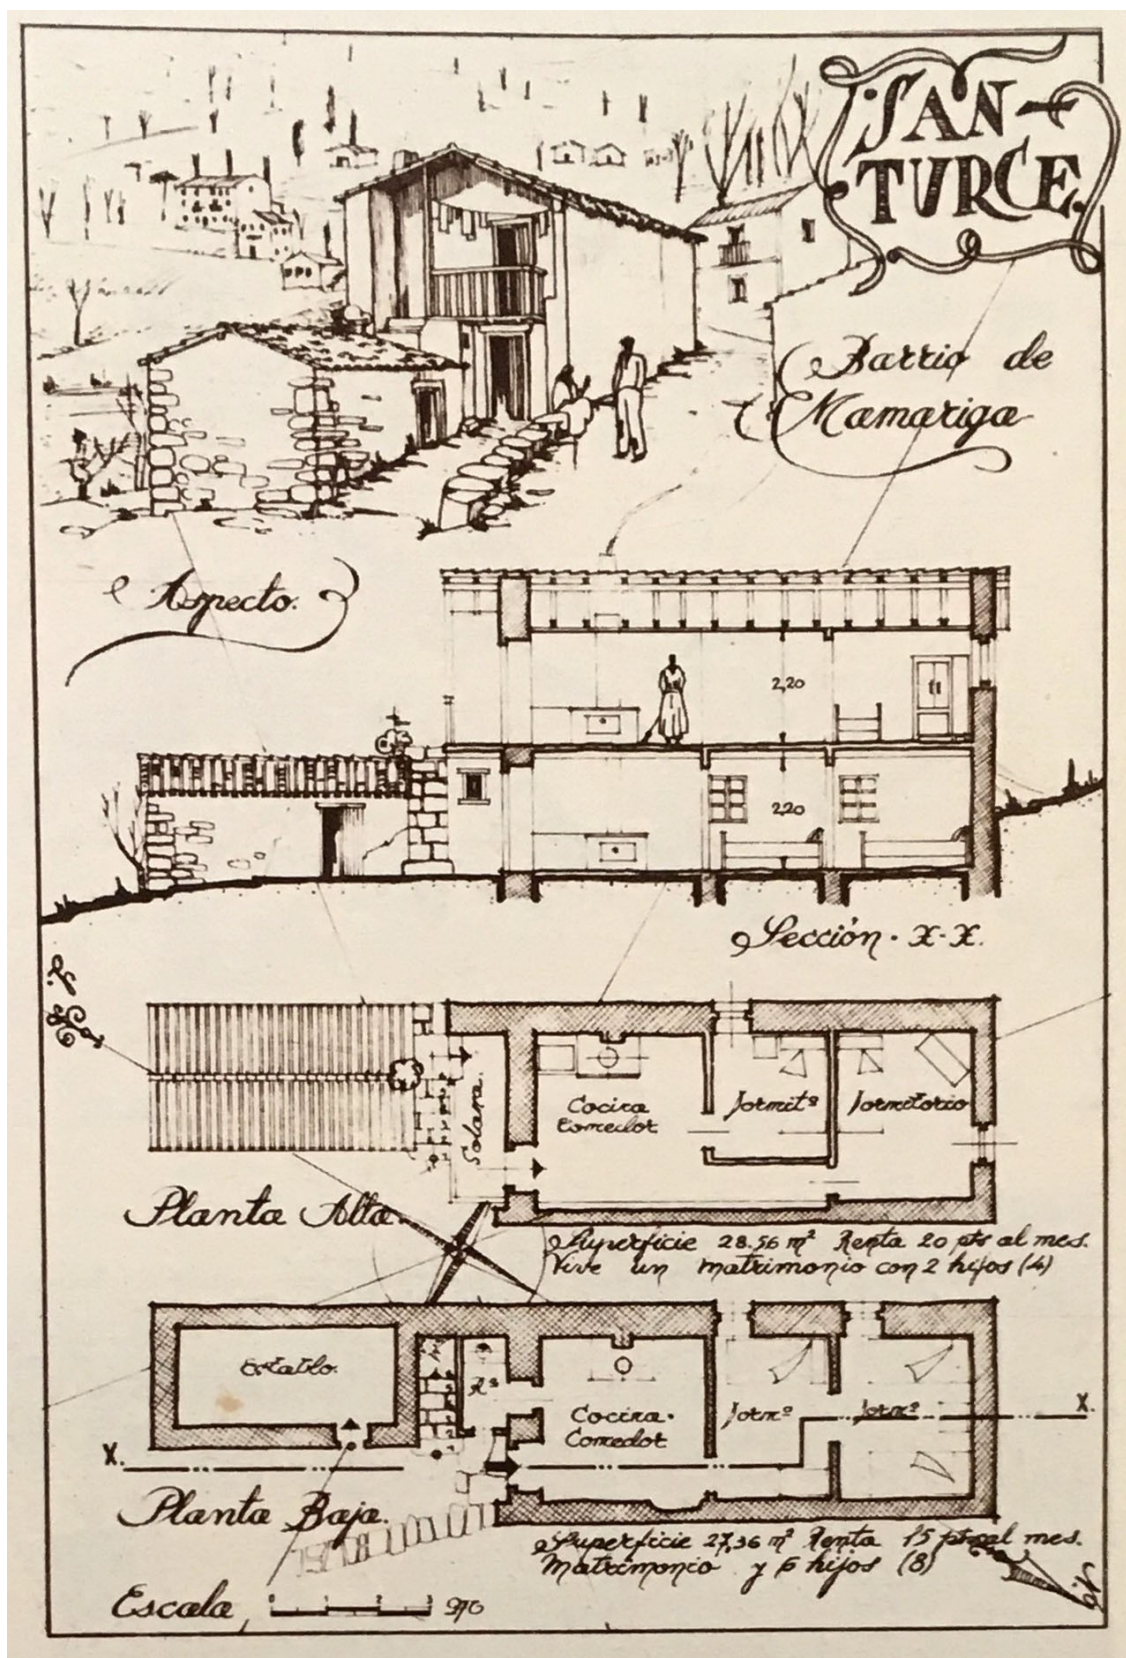 SAN-
TURCE.
Barrio de
Mamariga
Aspecto.
2,20
2,20
Sección. X-X.
Solana.
Cocina
Comedor
Dormitº
Dormitorio
Planta Alta.
Superficie 28.56 m² Renta 20 pts al mes.
Vive un matrimonio con 2 hijos (4)
Establo.
Cocina.
Comedor
Dormº
Dormº
X.
X.
Planta Baja.
Superficie 27,36 m² Renta 15 pts al mes.
Matrimonio y 6 hijos (8)
Escala